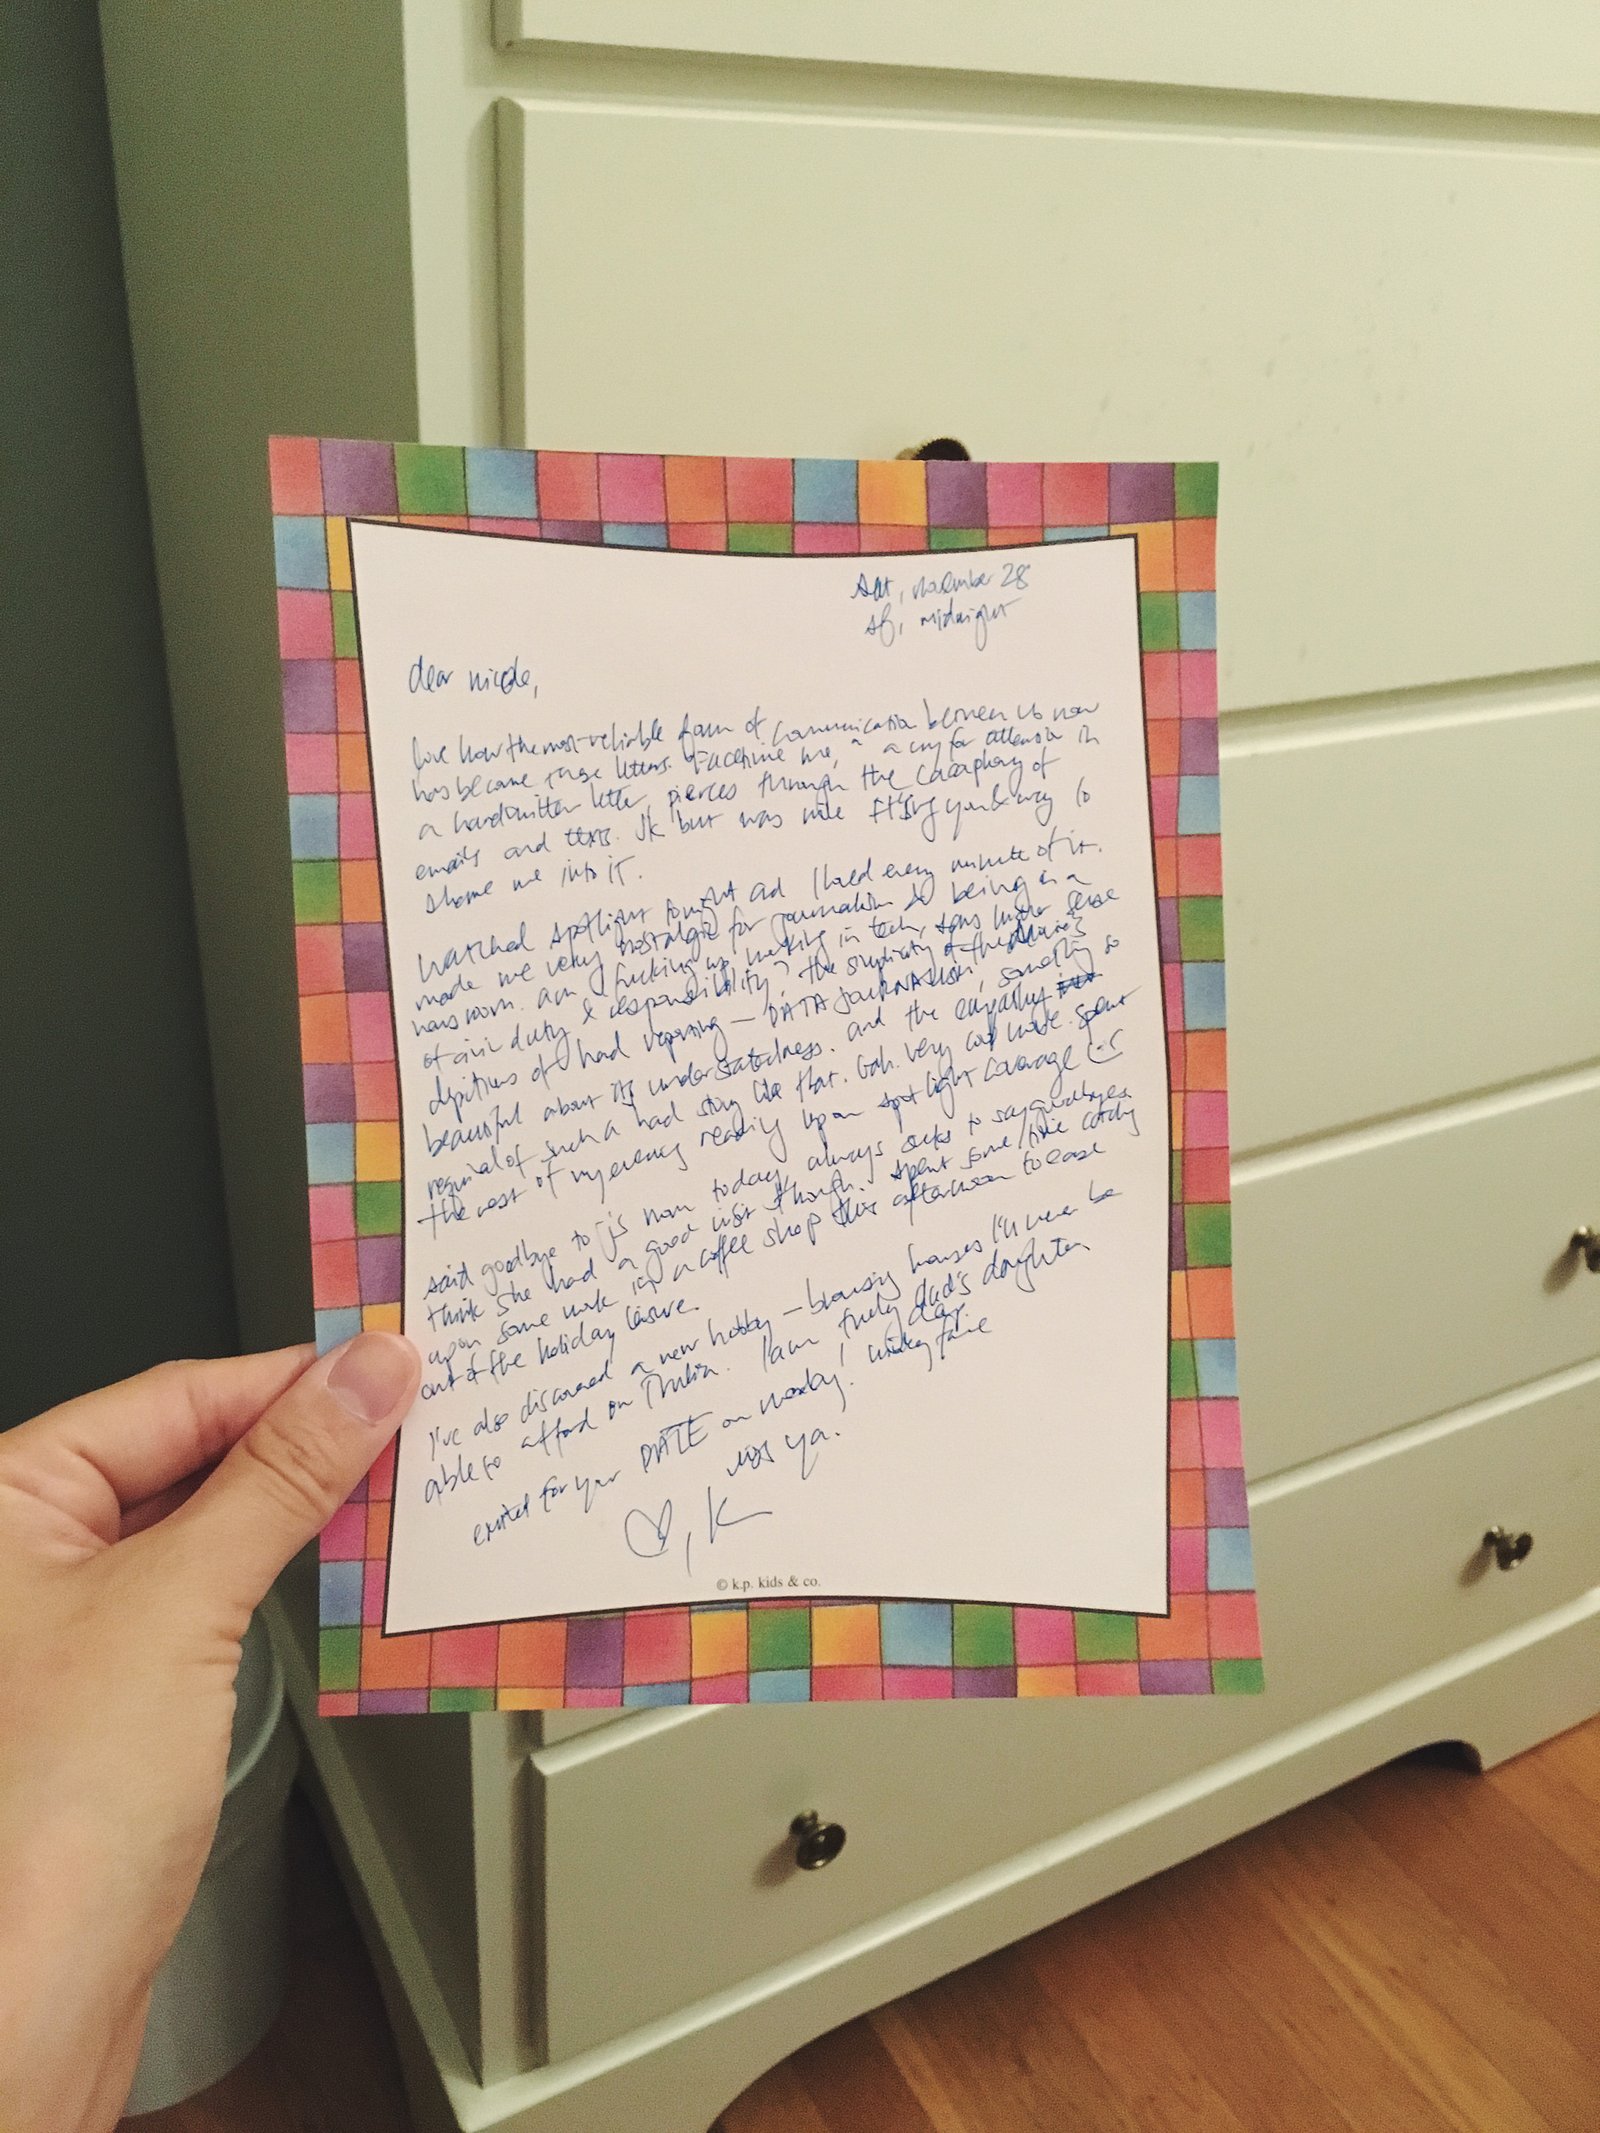 sat, november 28
sf, midnight
dear nicole,
love how the most reliable form of communication between us now
has become these letters. "Facetime me," a cry for attention in
a handwritten letter, pierces through the cacophony of
emails and texts. JK but was nice FT'ing you & way to
shame me into it.
watched spotlight tonight and I loved every minute of it.
made me very nostalgic for journalism & being in a
newsroom. am I fucking up working in tech, sans higher sense
of civic duty & responsibility? the simplicity of the movie's
depictions of hard reporting — DATA JOURNALISM, something so
beautiful about its understatedness. and the empathy
required of such a hard story like that. Gah. very cool movie. spent
the rest of my evening reading upon spotlight coverage
said goodbye to J's mom today, always sucks to say goodbyes.
think she had a good visit though. spent some time catching
upon some work in a coffee shop this afternoon to ease
out of the holiday leisure.
I've also discovered a new hobby — browsing houses I'll never be
able to afford on Trulia. I am truly dad's daughter.
excited for your DATE on Monday! winky face
miss ya.
♡, K
© k.p. kids & co.